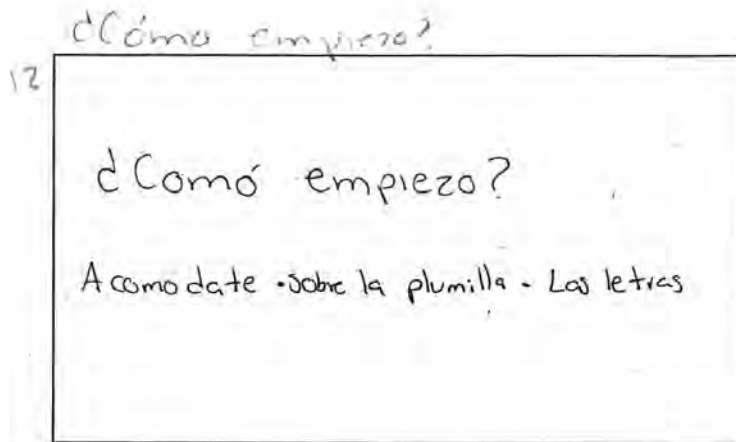 ¿Cómo empiezo?
12
¿Comó empiezo?
Acomodate · sobre la plumilla - Las letras